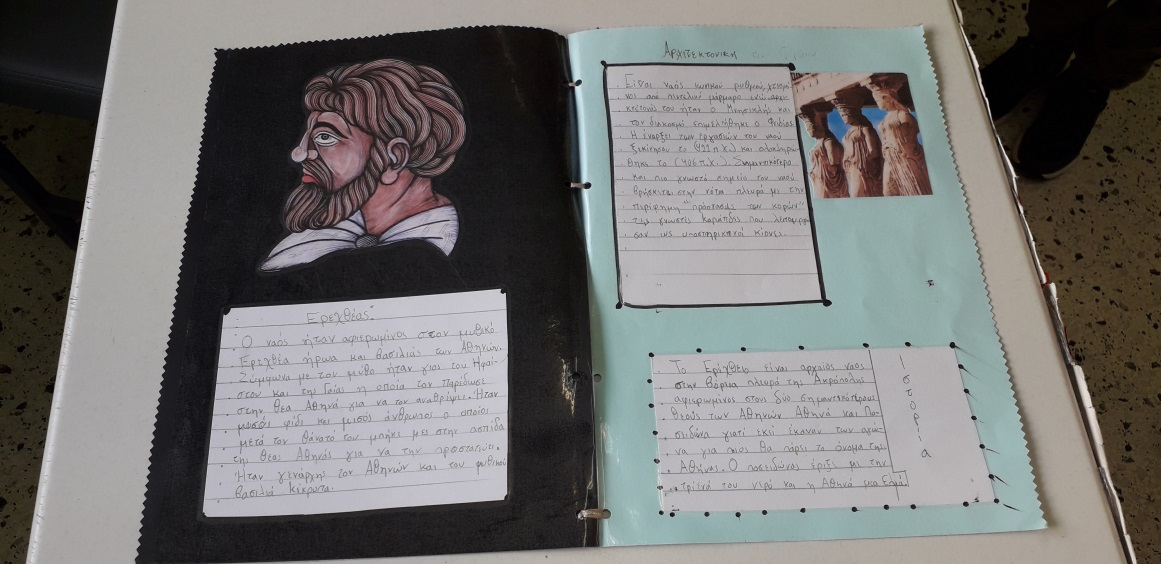 Ερεχθέας
Ο ναός ήταν αφιερωμένος στον μυθικό
Ερεχθέα ήρωα και βασιλιάς των Αθηνών.
Σύμφωνα με τον μύθο ήταν γιος του Ηφαί-
στου και της Γαίας η οποία τον παρέδωσε
στην θεά Αθηνά για να τον αναθρέψει. Ήταν
μισός φίδι και μισός άνθρωπος ο οποίος
μετά τον θάνατο του μπήκε μες στην ασπίδα
της θεάς Αθηνάς για να την προστατεύει.
Ήταν γενάρχης των Αθηνών και του μυθικού
βασιλιά Κέκροπα.
Αρχιτεκτονική
Είναι ναός ιωνικού ρυθμού, χτισμέ
νος από πεντελικό μάρμαρο ενώ αρχι
τέκτονάς του ήταν ο Μνησικλής και
τον διάκοσμο επιμελήθηκε ο Φειδίας
Η έναρξει των εργασιών του ναού
ξεκίνησαν το (421 π.Χ.) και ολοκληρώ
θηκε το (406 π.Χ.). Σημαντικότερο
και πιο γνωστό σημείο του ναού
βρίσκεται στην νότια πλευρά με την
περίφημη "πρόσταση των κορών"
τις γνωστές Καρυάτιδες που λειτουργού
σαν ως υποστηρικτικοί κίονες.
Το Ερέχθειο είναι αρχαίος ναός
στην βόρεια πλευρά της Ακρόπολης
αφιερωμένος στους δύο σημαντικότερους
θεούς των Αθηνών Αθηνά και Πο-
σειδώνα γιατί εκεί έκαναν τον αγώ-
να για ποιος θα πάρει το όνομα της
Αθήνας. Ο Ποσειδώνας έριξε με την
τρίαινά του νερό και η Αθηνά μια Ελιά.
Ιστορία